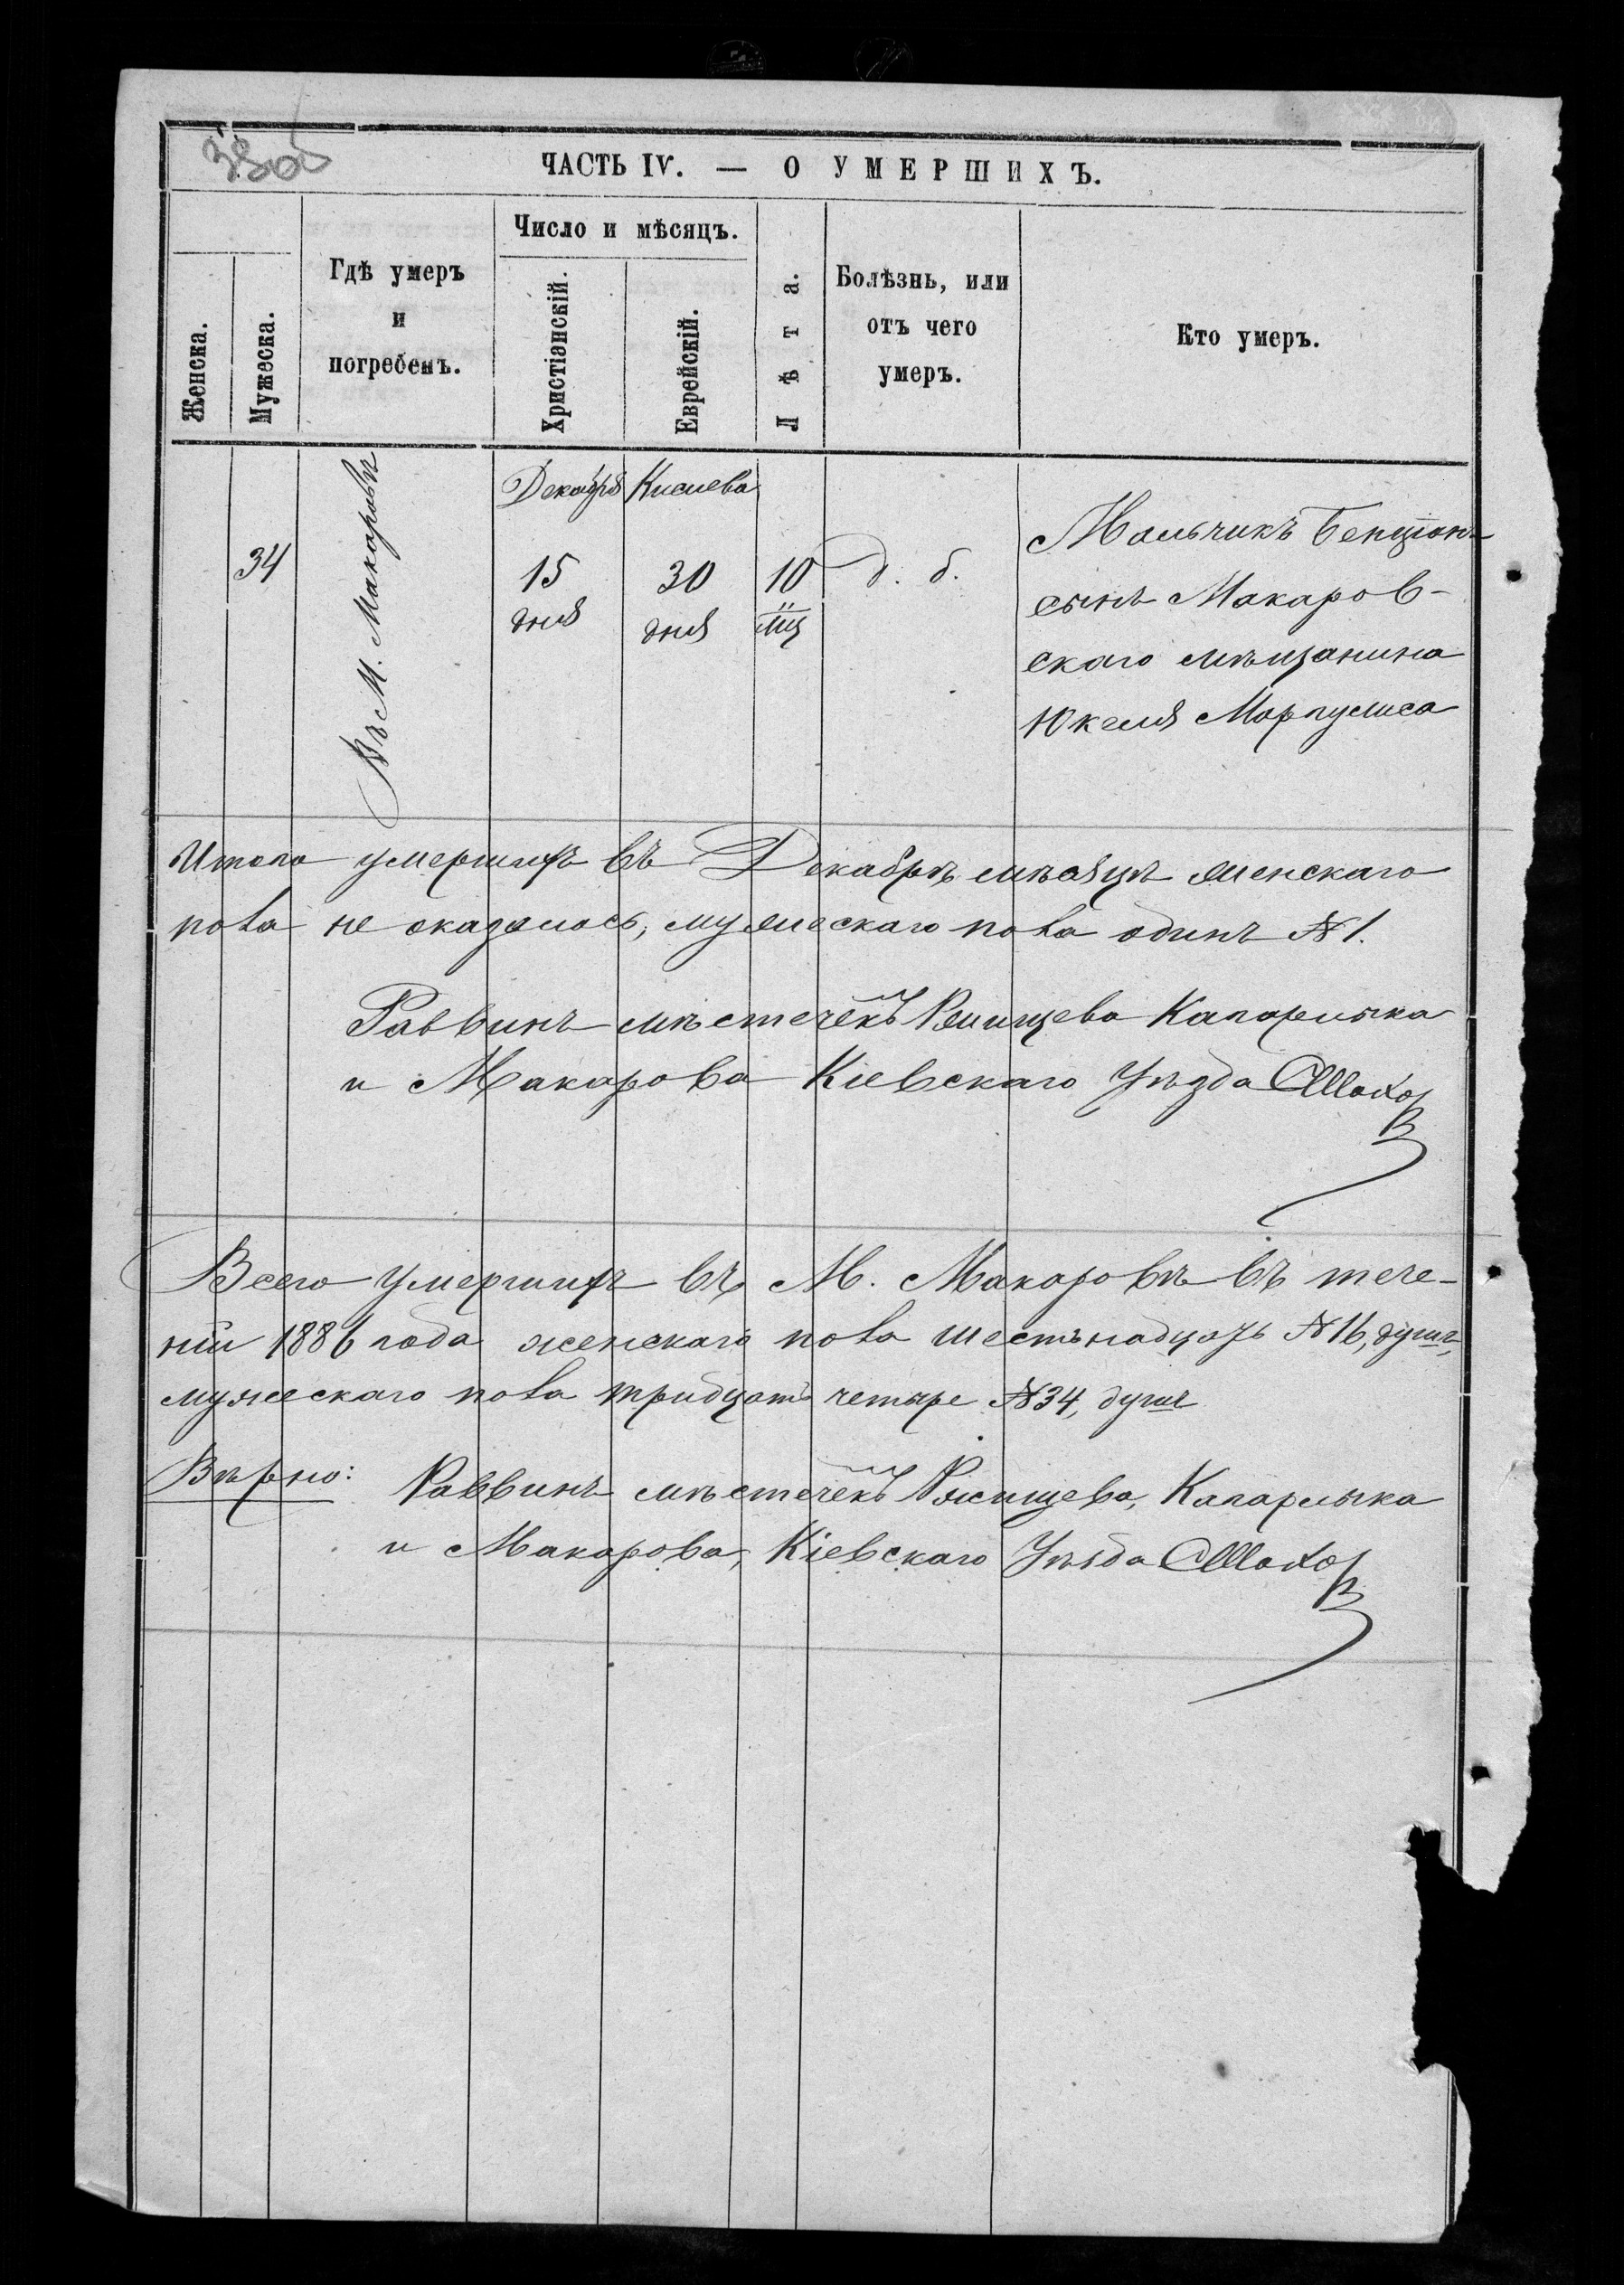 ЧАСТЬ IV. — О УМЕРШИХЪ.
Женска.
Мужеска.
Гдѣ умеръ
и
погребенъ.
Число и мѣсяцъ.
Христіанскій.
Еврейскій.
Лѣта.
Болѣзнь, или
отъ чего
умеръ.
Кто умеръ.
34
Въ М. Макаровѣ
Декабря
15
дня
Кислева
30
дня
10
мц
д. б.
Мальчикъ Бенціонъ
сынъ Макаров-
скаго мѣщанина
Юкеля
Итого умершихъ въ Декабрѣ мѣсяцѣ женскаго
пола не оказалось, мужескаго пола одинъ №1.
Раввинъ мѣстечекъ Ржищева Капарлыка
и Макарова Кіевскаго Уѣзда
Всего умершихъ въ М. Макаровѣ въ тече-
ніи 1886 года женскаго пола шестьнадцать №16, душъ,
мужескаго пола тридцать четыре №34, душъ
Вѣрно:
Раввинъ мѣстечекъ Ржищева, Капарлыка
и Макарова, Кіевскаго Уѣзда